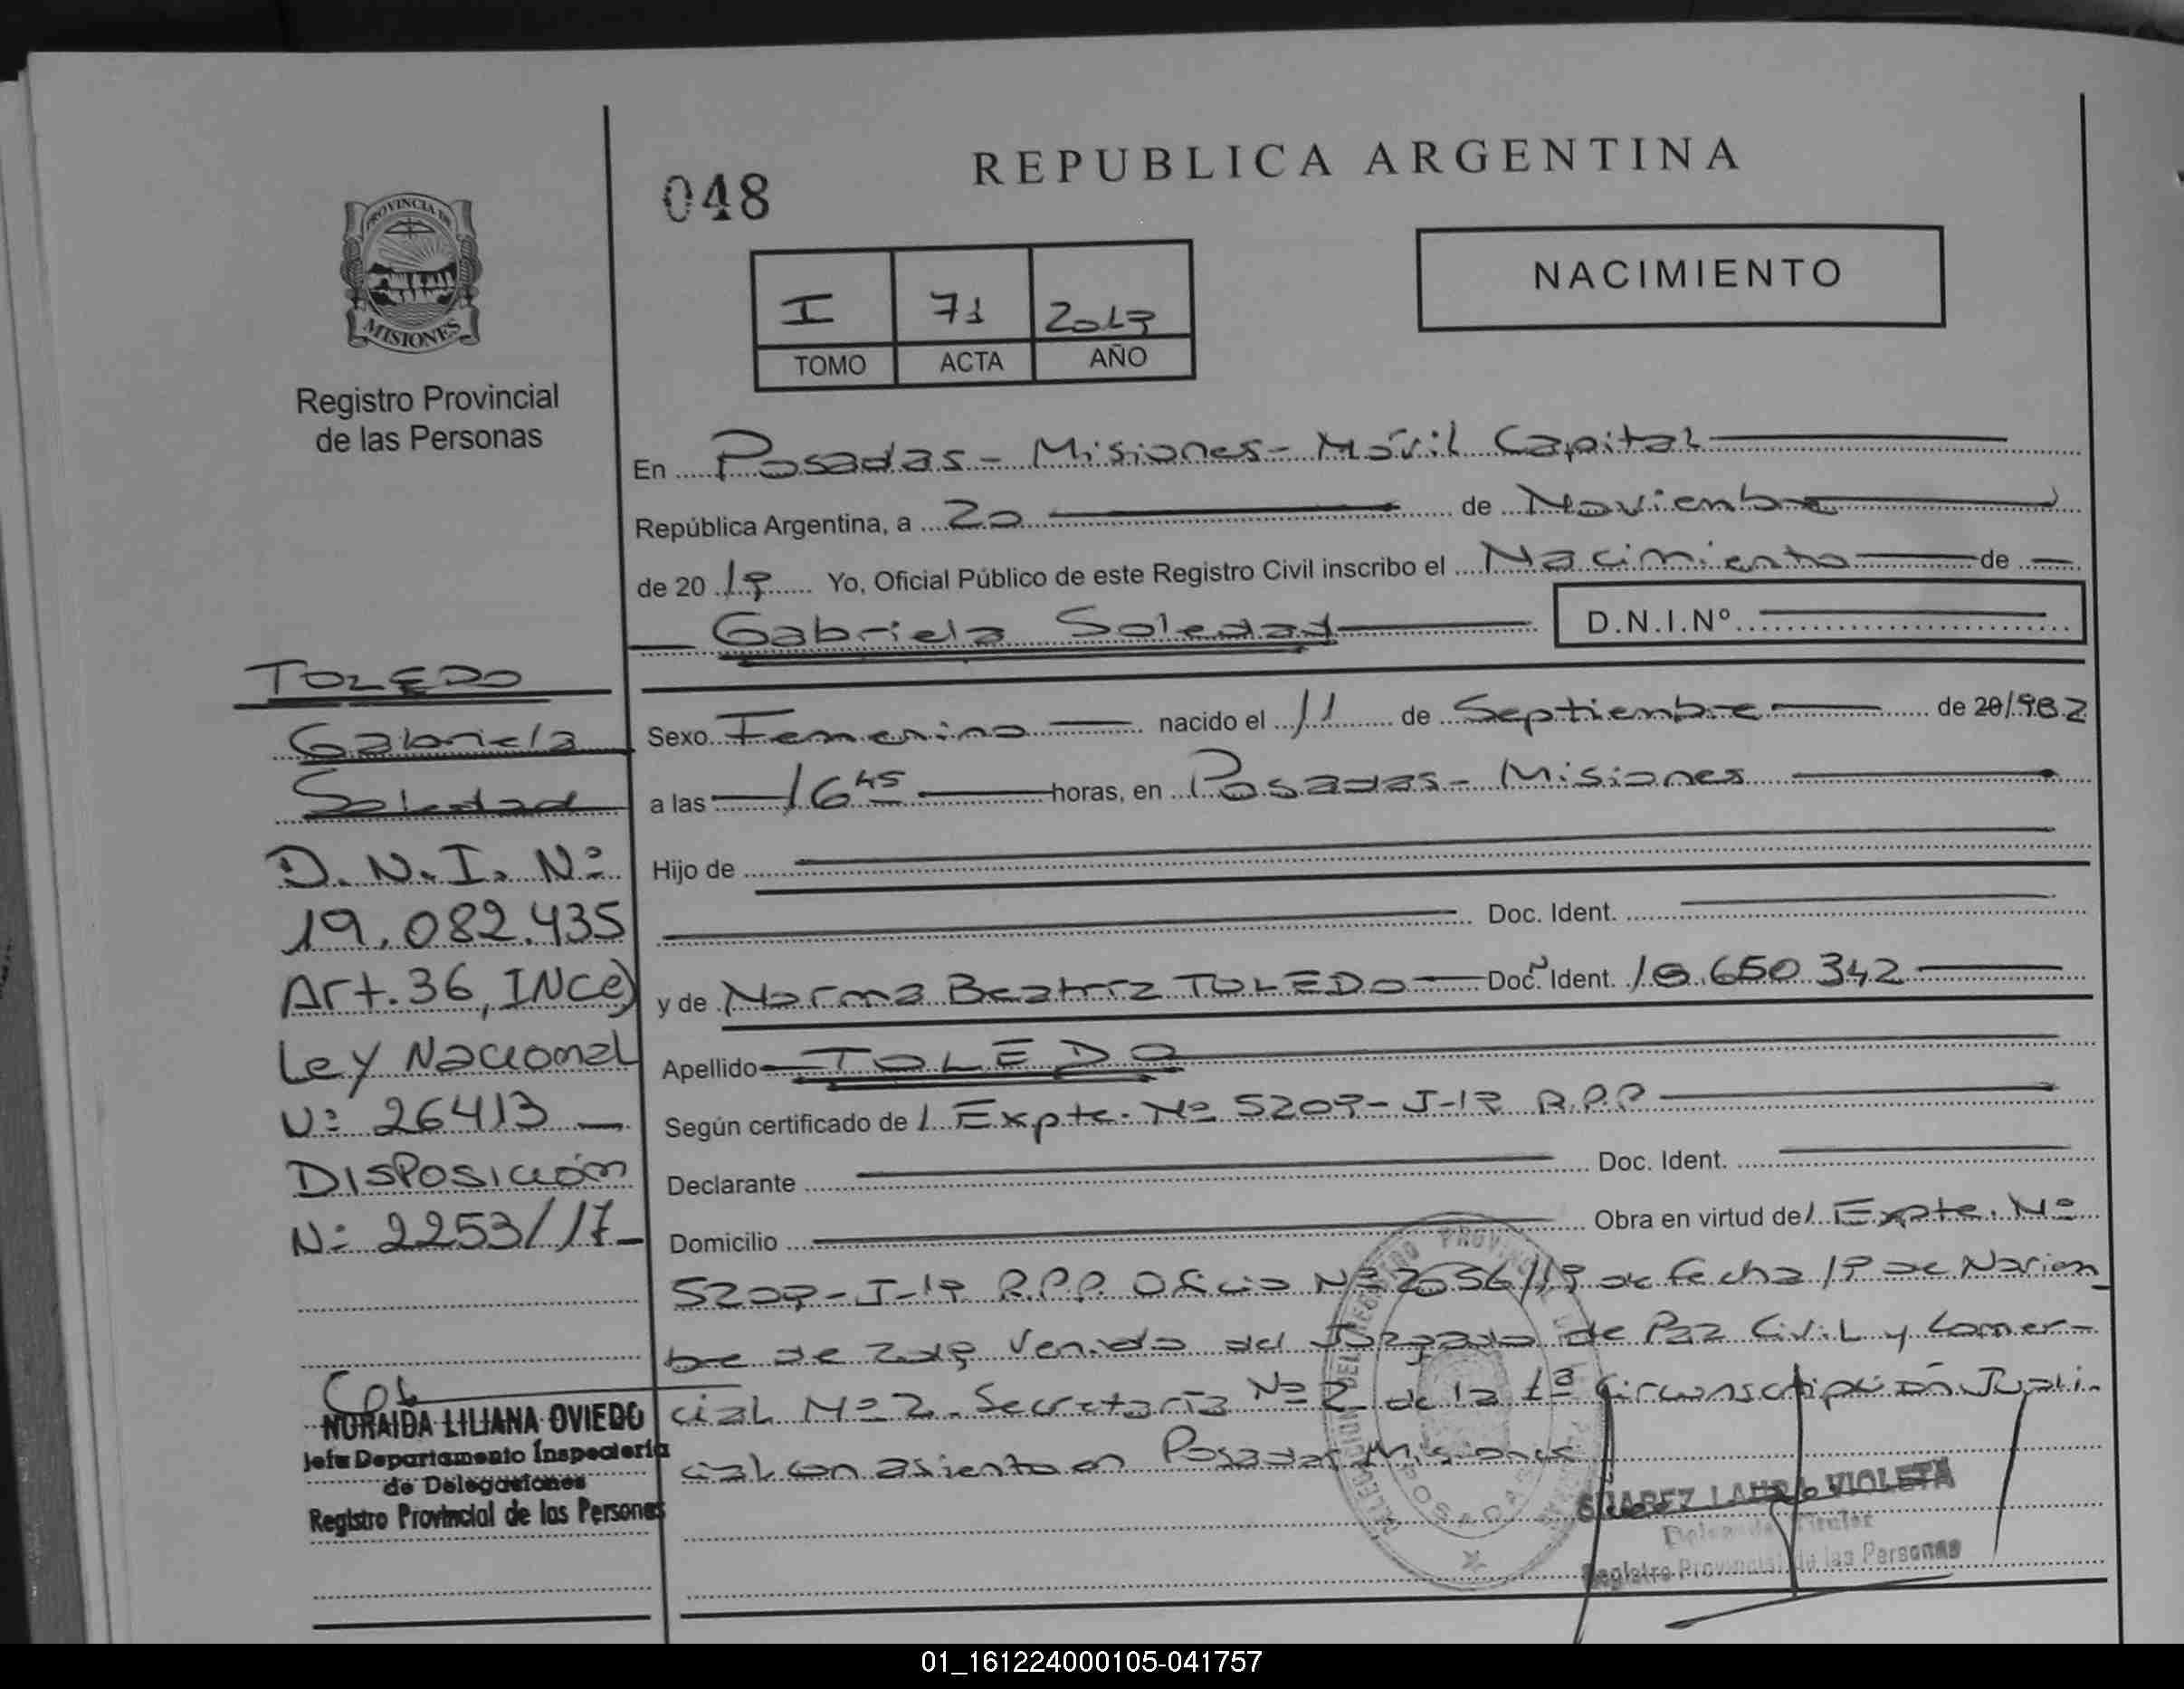 048
REPUBLICA ARGENTINA
PROVINCIA DE
MISIONES
Registro Provincial
de las Personas
NACIMIENTO
I 71 2017
TOMO ACTA AÑO
En Posadas - Misiones - Móvil Capital
República Argentina, a 20 de Noviembre
de 20 17 Yo, Oficial Público de este Registro Civil inscribo el Nacimiento de
Gabriela Soledad D.N.I.Nº
Sexo Femenino nacido el 11 de Septiembre de 20/982
a las 16 45 horas, en Posadas - Misiones
Hijo de
Doc. Ident.
y de Norma Beatriz TOLEDO Doc. Ident. 16.650.342
Apellido TOLEDO
Según certificado de / Expte. Nº 5207-J-17 R.P.P
Declarante Doc. Ident.
Domicilio Obra en virtud de / Expte. Nº
5207-J-17 R.P.P. Oficio Nº 2056/17 de fecha 17 de Noviem
bre de 2017 Venido del Juzgado de Paz Civil y Comer-
cial Nº 2. Secretaría Nº 2 de la 1ª Circunscripción Judi-
cial con asiento en Posadas Misiones
SUAREZ LAURA VIOLETA
Delegada Titular
Registro Provincial de las Personas
TOLEDO
Gabriela
Soledad
D.N.I. Nº
19.082.435
Art. 36, INC e)
Ley Nacional
Nº 26413
DISPOSICIÓN
Nº 2253/17
NORAIDA LILIANA OVIEDO
Jefa Departamento Inspectoria
de Delegaciones
Registro Provincial de las Personas
POSADAS
01_161224000105-041757